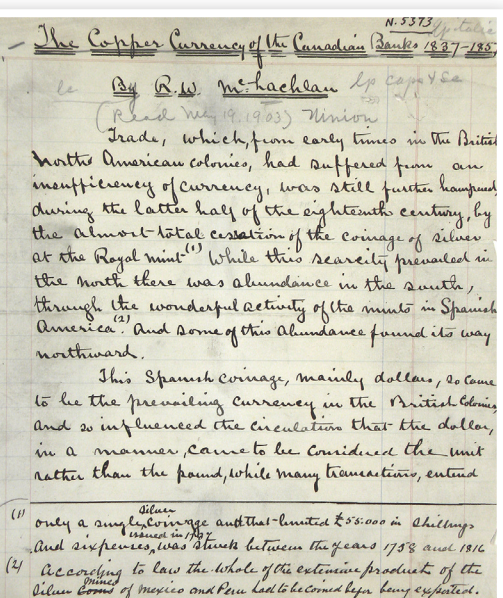 N. 5373
The Copper Currency of the Canadian Banks 1837-1857
By R.W. McLachlan
lp caps & sc
(Read May 19, 1903) Minion
Trade, which, from early times in the British
North American colonies, had suffered from an
insufficiency of currency, was still further hampered,
during the latter half of the eighteenth century, by
the almost total cessation of the coinage of silver
at the Royal mint (1) While this scarcity prevailed in
the north there was abundance in the south,
through the wonderful activity of the mints in Spanish
America. (2) And some of this abundance found its way
northward.
This Spanish coinage, mainly dollars, so came
to be the prevailing currency in the British Colonies
and so influenced the circulation that the dollar,
in a manner, came to be considered the unit
rather than the pound, while many transactions, entend
(1) only a single silver coinage and that limited £55.000 in shillings
issued in 1787
and sixpenses, was struck between the years 1758 and 1816
(2) According to law the whole of the extensive products of the
silver mines of Mexico and Peru had to be coined befor being exported.